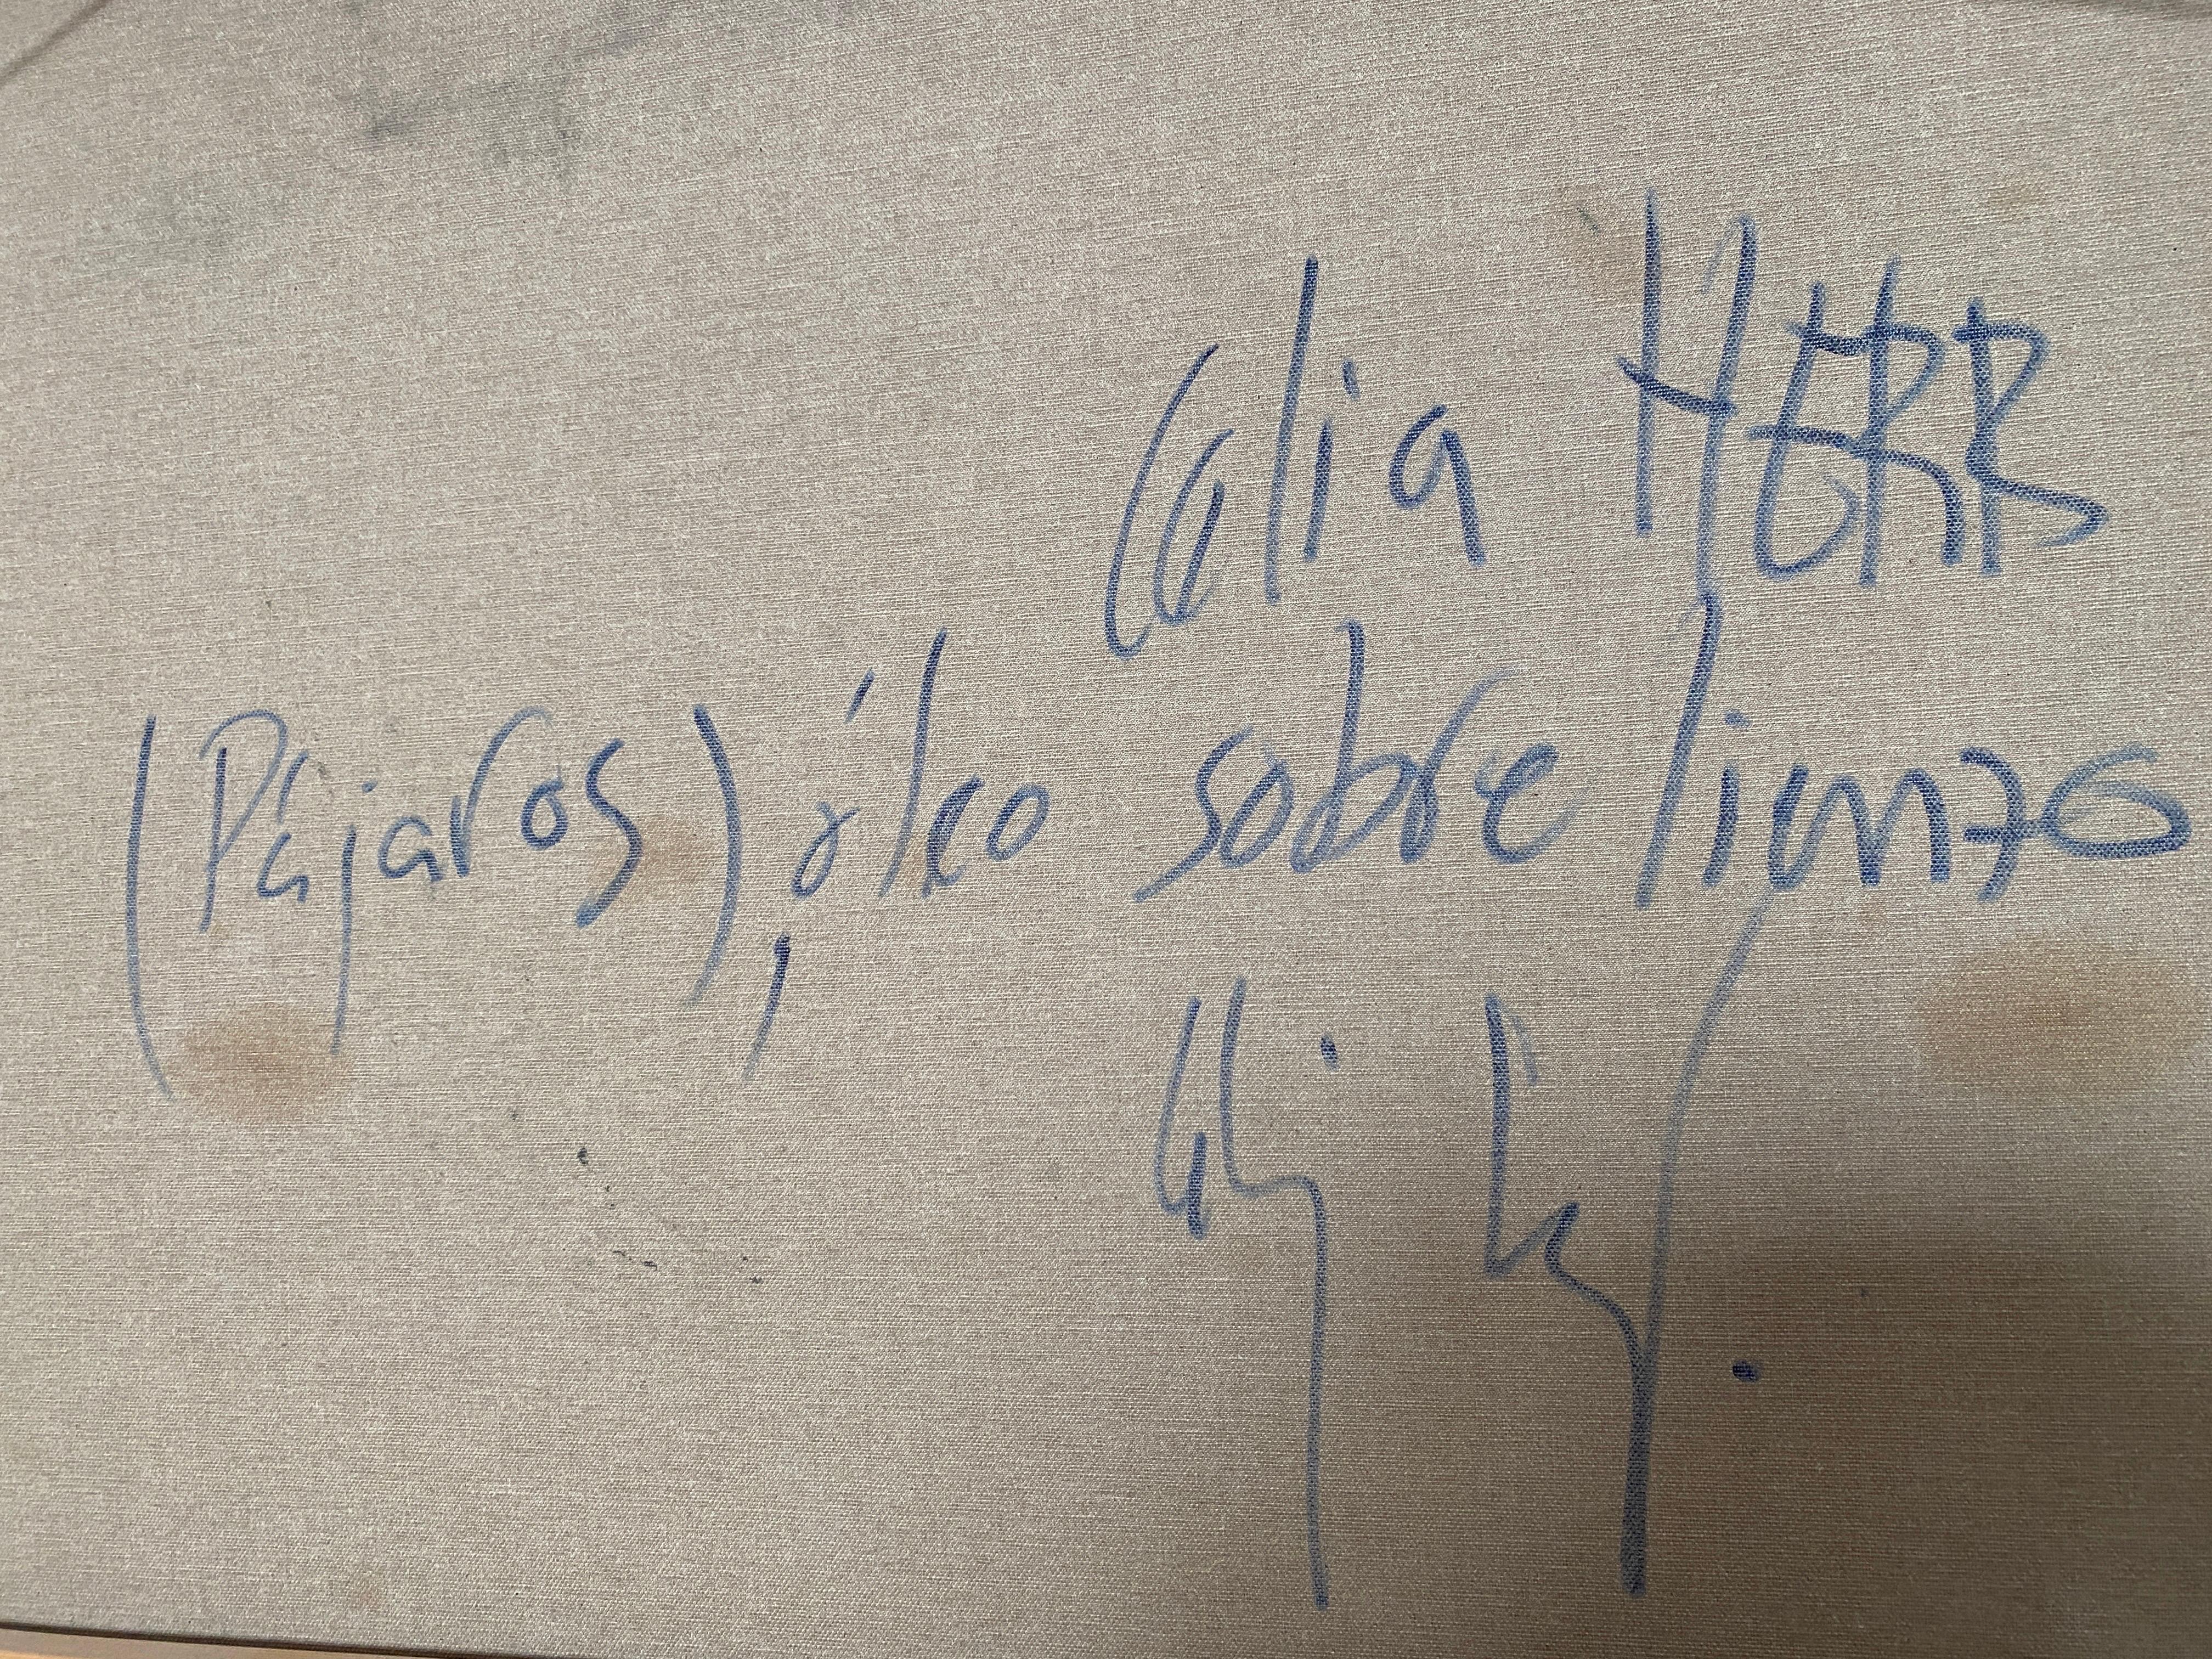 Celia HERR
(Pájaros), óleo sobre lienzo